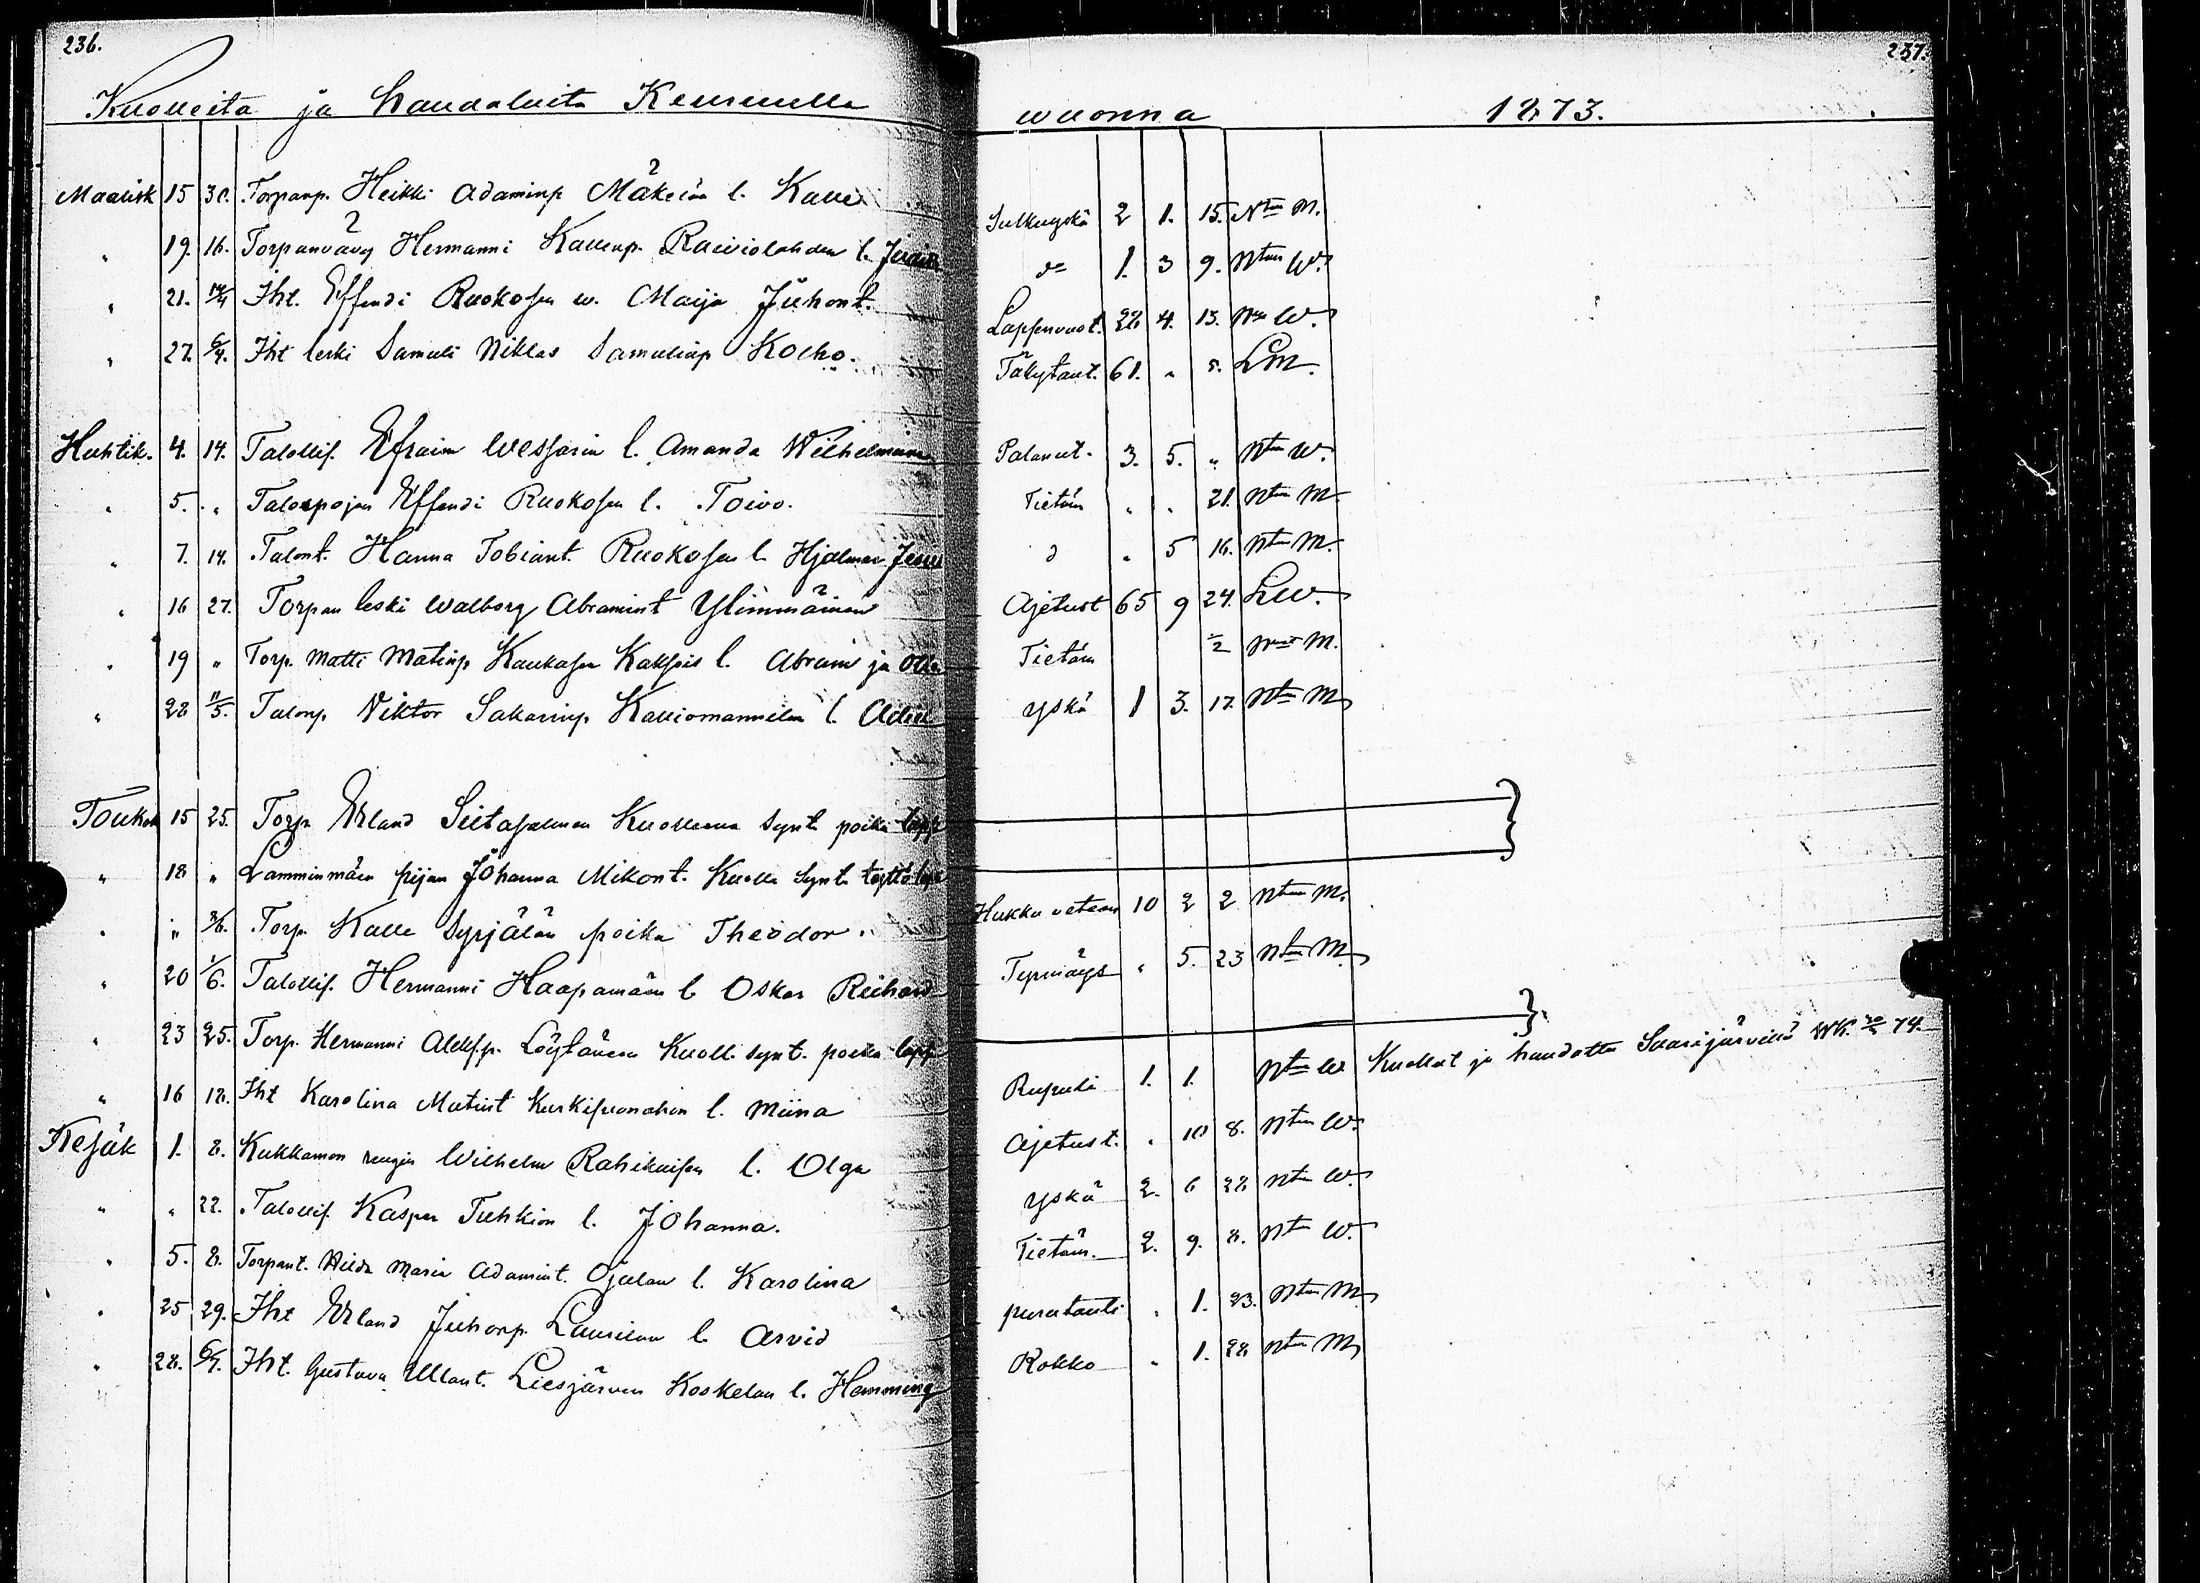 236.
237.
Kuolleita ja haudatuita Keuruulla wuonna 1873.
Maalisk 15 30. Torpanp. Heikki Adaminp Mäkelän l. Kalle Tulkuyskä 2 1. 15. Ntm M.
" 19. 16. Torpanvävy Hermanni Kallenp. Raiviolahden l. do 1. 3 9. Ntm W.
" 21. 14/4 Iht. Effendi Ruokosen w. Maija Juhont. Lapsenvuot. 28 4. 13. Nm W.
" 27. 6/4. Iht leski Samuli Niklas Samulinp Kolho. Tähytaut. 61. " 5. LM.
Huhtik. 4. 14. Talollis. Efraim Wessarin l. Amanda Wilhelmiina Palanut. 3. 5. " Ntm W.
" 5. " Talonpojan Effendi Ruokosen l. Toivo. Tietäm " " 21. Ntm M.
" 7. 14. Talont. Hanna Tobiant. Ruokosen l. Hjalmar d " 5 16. Ntm M.
" 16 27. Torpan leski Walborg Abramint Ylimmäinen Ajetust 65 9 24. LW.
" 19 " Torp. Matti Matinp Kaukasen Kaksois l. Abram ja Otto Tietäm 1/2 M.
" 28 11/5. Talonp Viktor Sakarinp. Kalliomannilan l. Adiel yskä 1 3. 17. Ntm M
Toukok 15 25. Torp Erland Siitasalmen Kuolleena synt. poika laps
" 18 " Lamminmäen pijan Johanna Mikont. Kuolle synt. tyttö laps
" " 3/6. Torp Kalle Syrjälän poika Theodor. Hukku veteen 10 2 2 Ntm M.
" 20 1/6. Talollis. Hermanni Haapamäen l. Oskar Richard " 5. 23 Ntm M.
" 23 25. Torp. Hermanni Aleks.p. Löytänen Kuoll. synt. poika laps
" 16 18. Iht Karolina Matint Kurkisuonahon l. Miina Rupuli 1. 1. Ntm W Kuollut ja haudattu Saarijärvellä 74.
Kesäk 1. 8. Kukkamon rengin Wilhelm Rahikaisen l. Olga Ajetust. " 10 8. Ntm W.
" " 22. Talollis Kasper Tuhkion l. Johanna. yskä 2. 6 28 Ntm W.
" 5. 8. Torpant. Hilda Maria Adamint. Ojalan l. Karolina Tietäm. 2. 9. 8. Ntm W.
" 25 29. Iht Erland Juhonp. Laurilan l. Arvid purutauti " 1. 23. Ntm M
" 28. 6/7. Iht. Gustava Ullant. Liesjärven Koskelan l. Hemming Rokko " 1. 28 Ntm M